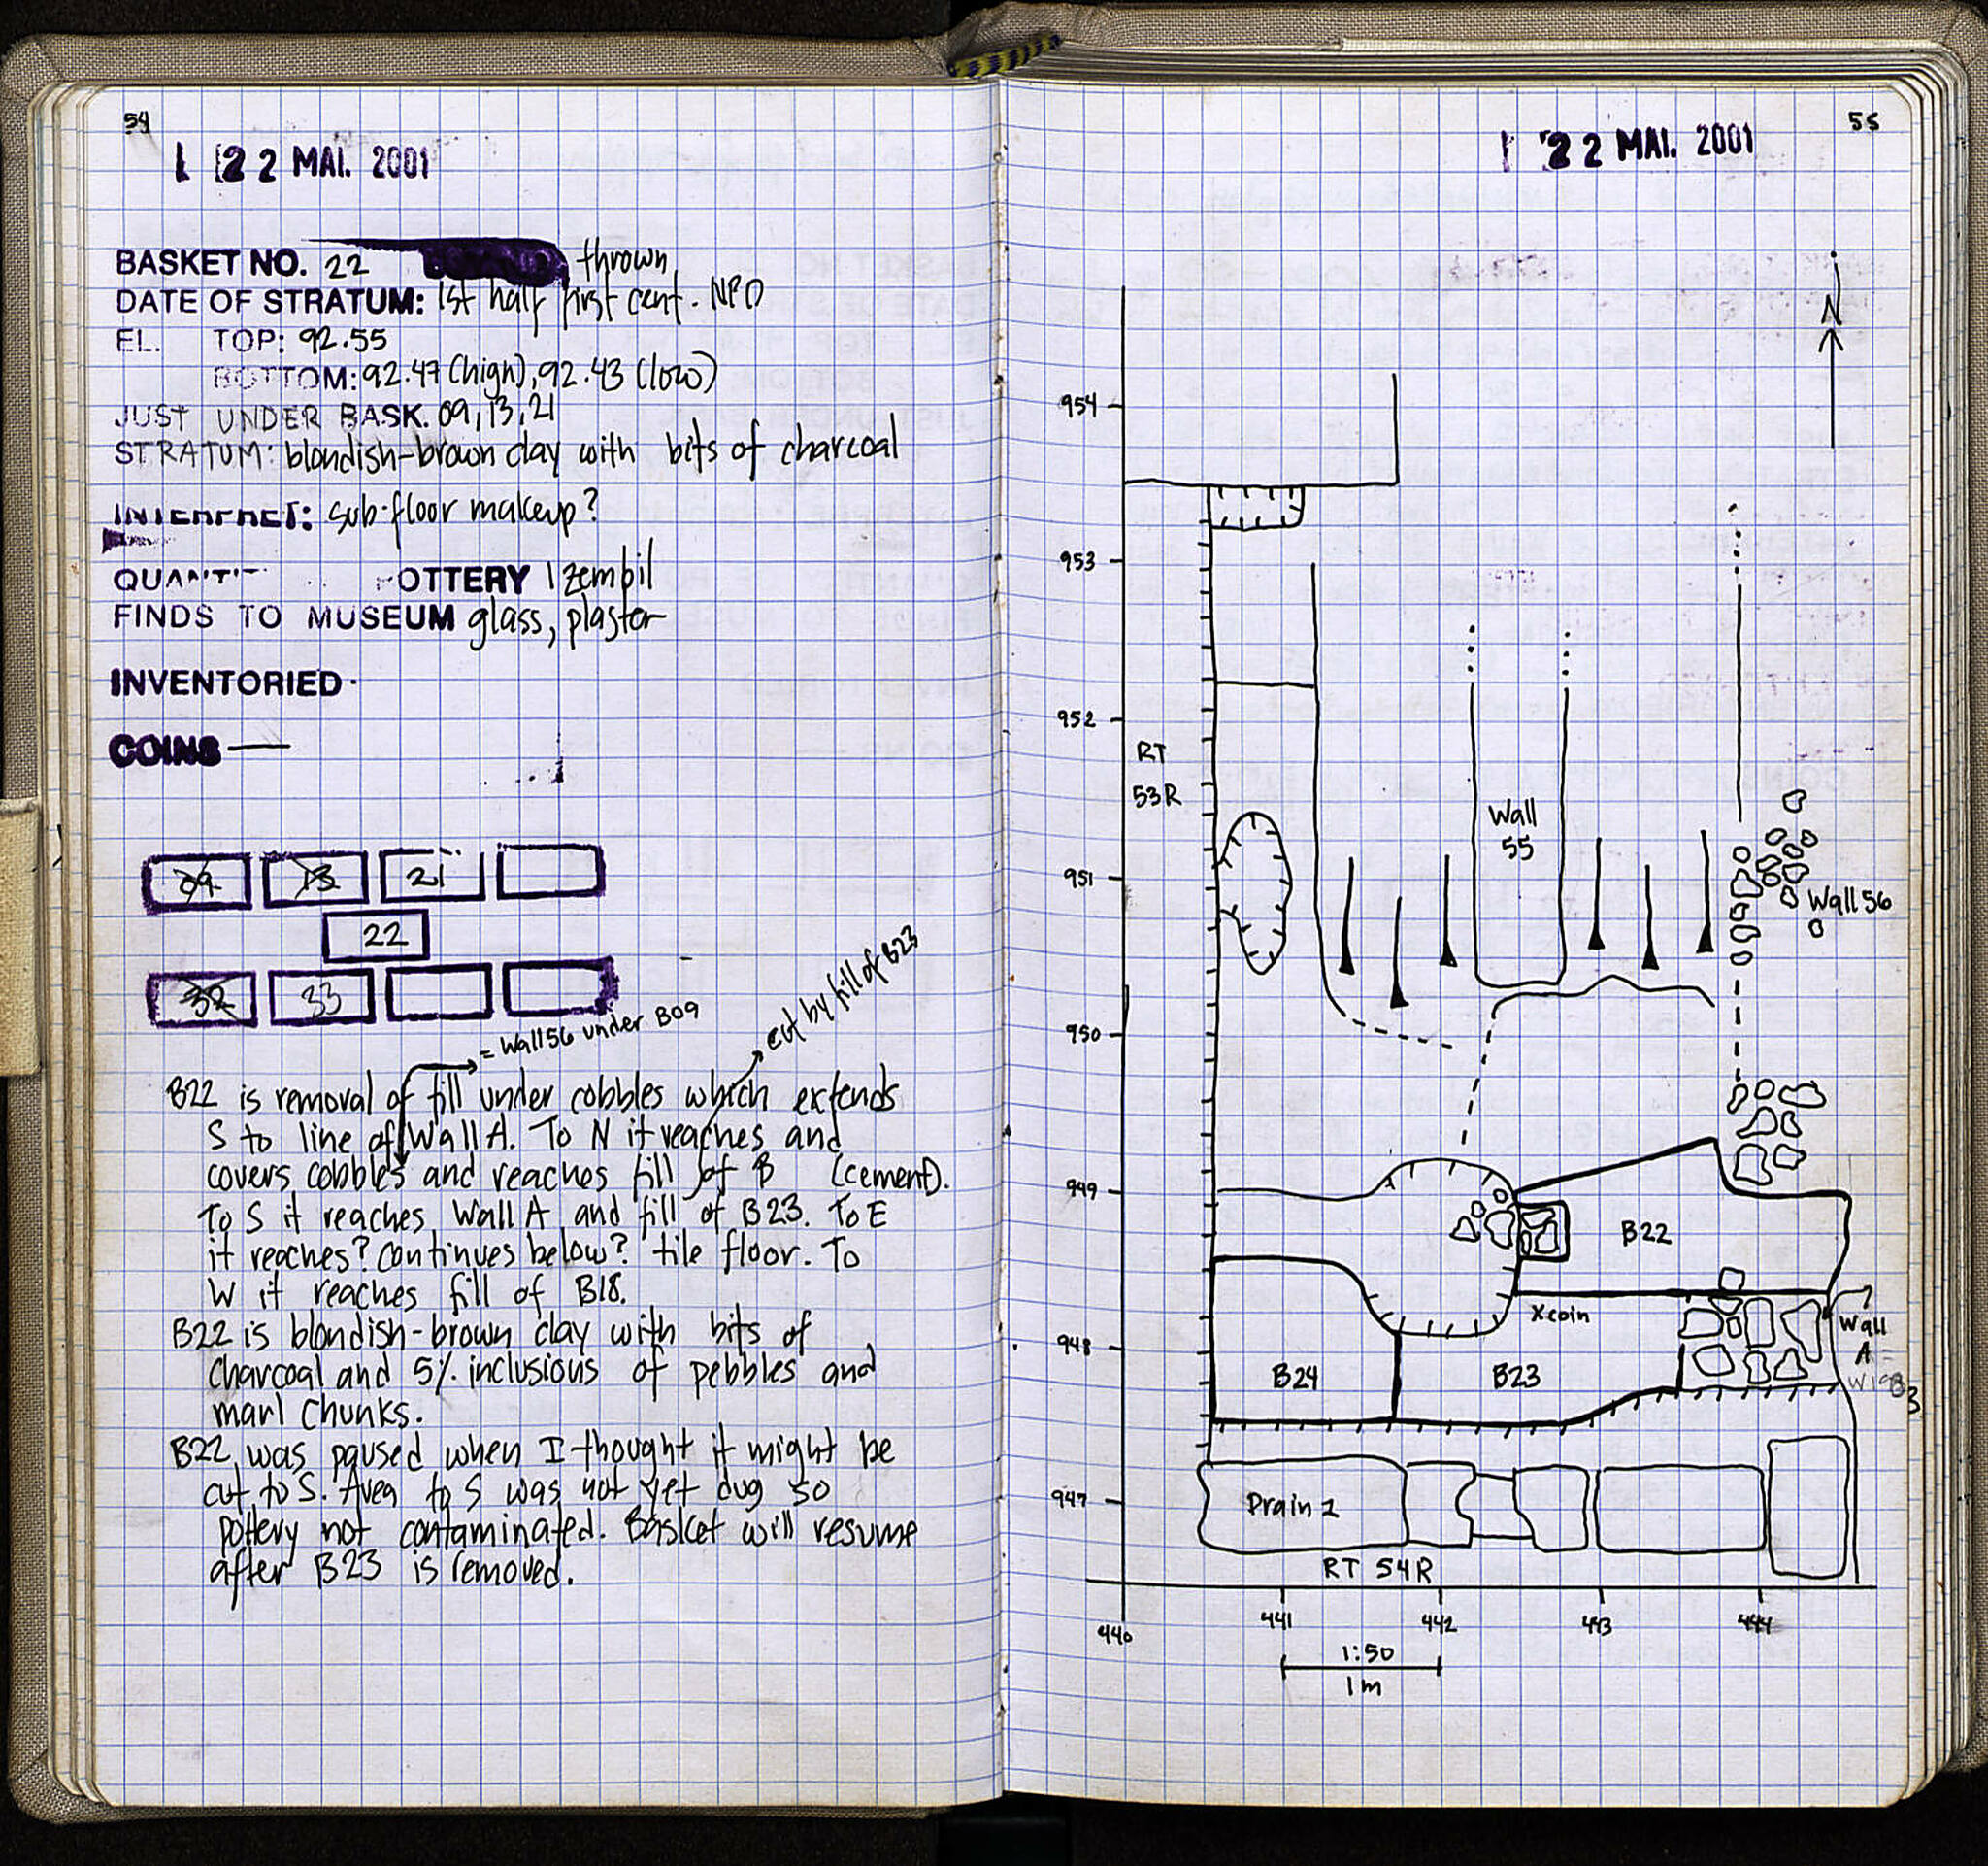 54
22 MAI. 2001
BASKET NO. 22 thrown
DATE OF STRATUM: 1st half first cent. NPD
EL. TOP: 92.55
BOTTOM: 92.47 (high), 92.43 (low)
JUST UNDER BASK. 09, 13, 21
STRATUM: blondish-brown clay with bits of charcoal
INTERPRET: sub-floor makeup?
POTTERY 1 zembil
FINDS TO MUSEUM glass, plaster
INVENTORIED
COINS —
09 13 21
22
32 33
= Wall 56 under B09
cut by fill of B23
B22 is removal of fill under cobbles which extends
S to line of Wall A. To N it reaches and
covers cobbles and reaches fill of B (cement).
To S it reaches Wall A and fill of B23. To E
it reaches? continues below? tile floor. To
W it reaches fill of B18.
B22 is blondish-brown clay with bits of
charcoal and 5% inclusions of pebbles and
marl chunks.
B22 was paused when I thought it might be
cut to S. Area to S was not yet dug so
pottery not contaminated. Basket will resume
after B23 is removed.
55
22 MAI. 2001
N
954
953
952
RT
53R
Wall
55
951
Wall 56
950
949
B22
X coin
948
B24
B23
?
Wall
A =
947
Drain 2
RT 54R
440
441
442
443
444
1:50
1m